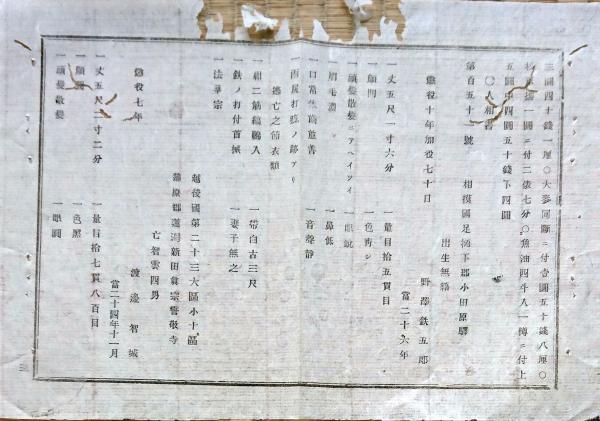 三圓四十錢一厘〇大麥同斷ニ付壹圓五十錢八厘〇
一圓ニ付二俵七分〇魚油四斗八一樽ニ付上
五圓中四圓五十錢下四圓
〇人相書
第百五十一號 相摸國足柄下郡小田原驛
出生無籍
懲役十年加役七十日 野澤鉄五郎
當二十六年
一丈五尺一寸六分 一量目拾五貫目
一顏 一色青シ
一頭髮散髮 一眼
一眉毛濃 一鼻低
一口常 一音聲靜
一兩尻打
逃亡之節衣類
一紺二筋縞鵜入 一帶白古三尺
一鉄ノ打付首 一妻子無之
一法華宗
越後國第二十三大區小十區
蒲原郡 新田眞宗 敬寺
亡智雲四男
懲役七年 渡邊智城
當二十四年十一月
一丈五尺二寸二分 一量目拾七貫八百目
一顏 一色黑
一頭髮散髮 一眼圓